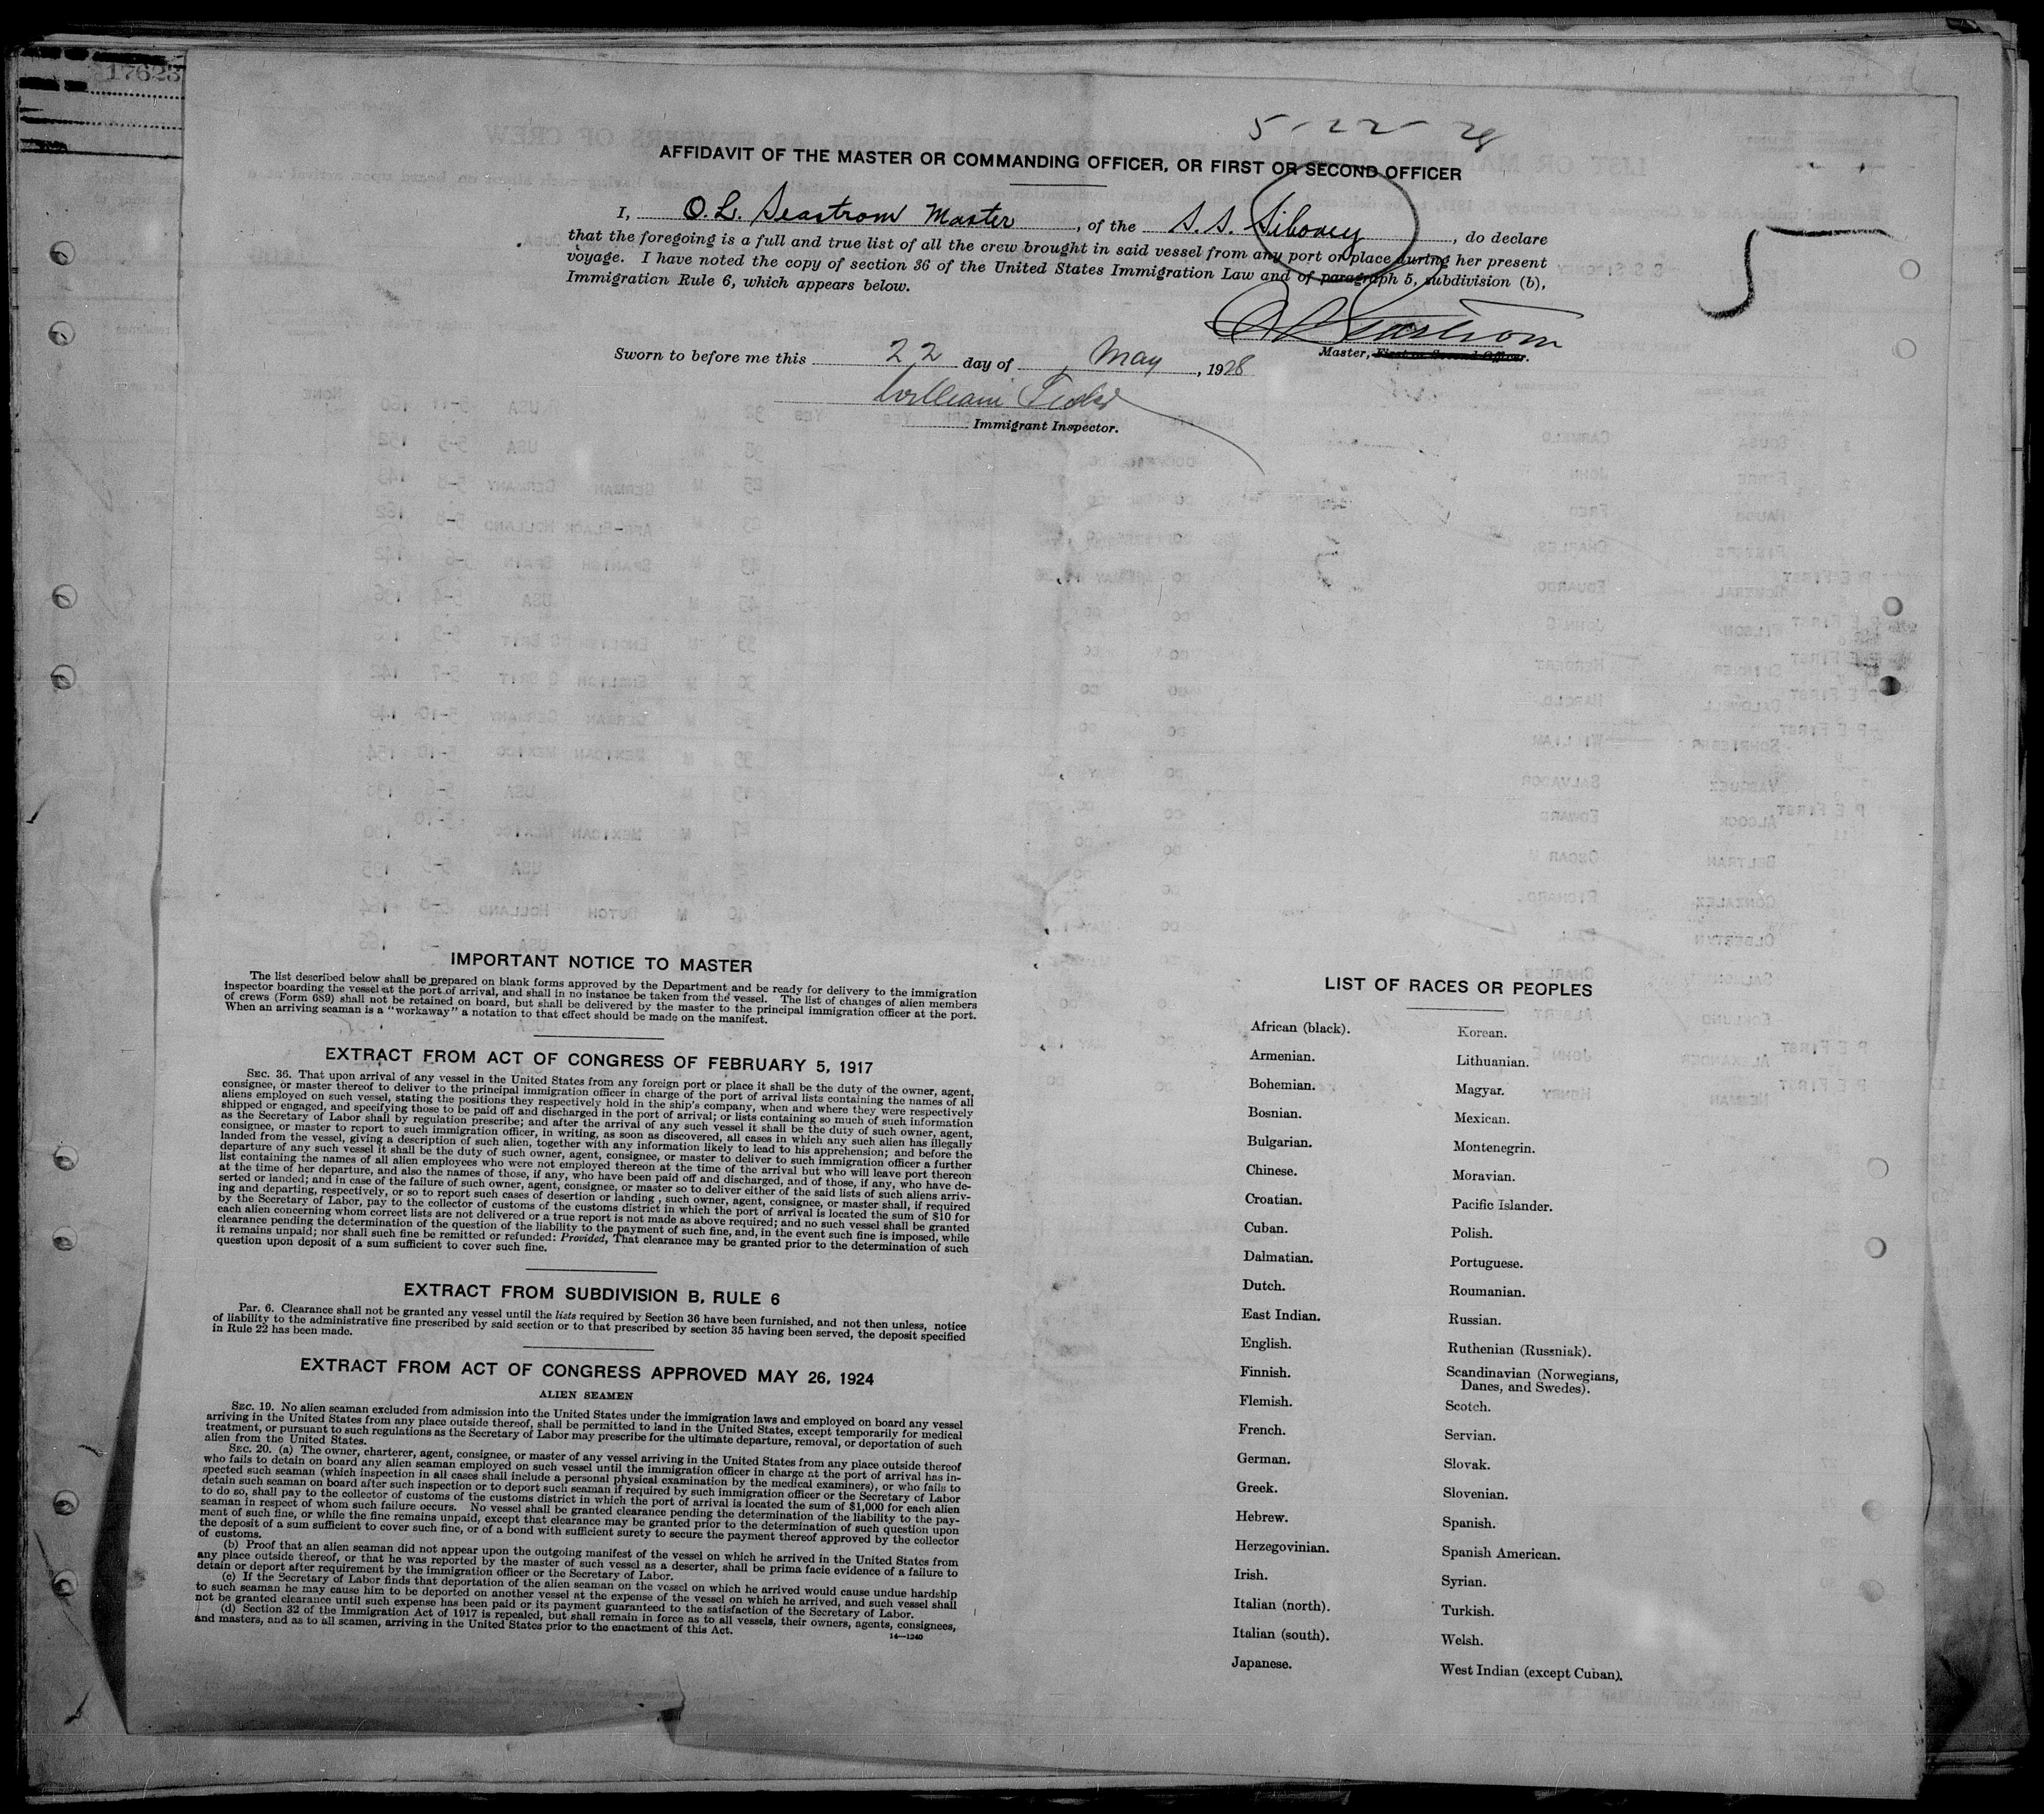 17623
5-22-28
AFFIDAVIT OF THE MASTER OR COMMANDING OFFICER, OR FIRST OR SECOND OFFICER
I, O. L. Seastrom Master, of the S.S. Siboney, do declare
that the foregoing is a full and true list of all the crew brought in said vessel from any port or place during her present
voyage. I have noted the copy of section 36 of the United States Immigration Law and of paragraph 5, subdivision (b),
Immigration Rule 6, which appears below.
5
O L Seastrom
Master, First or Second Officer.
Sworn to before me this 22 day of May, 1928
William
Immigrant Inspector.
IMPORTANT NOTICE TO MASTER
The list described below shall be prepared on blank forms approved by the Department and be ready for delivery to the immigration
inspector boarding the vessel at the port of arrival, and shall in no instance be taken from the vessel. The list of changes of alien members
of crews (Form 689) shall not be retained on board, but shall be delivered by the master to the principal immigration officer at the port.
When an arriving seaman is a "workaway" a notation to that effect should be made on the manifest.
EXTRACT FROM ACT OF CONGRESS OF FEBRUARY 5, 1917
SEC. 36. That upon arrival of any vessel in the United States from any foreign port or place it shall be the duty of the owner, agent,
consignee, or master thereof to deliver to the principal immigration officer in charge of the port of arrival lists containing the names of all
aliens employed on such vessel, stating the positions they respectively hold in the ship's company, when and where they were respectively
shipped or engaged, and specifying those to be paid off and discharged in the port of arrival; or lists containing so much of such information
as the Secretary of Labor shall by regulation prescribe; and after the arrival of any such vessel it shall be the duty of such owner, agent,
consignee, or master to report to such immigration officer, in writing, as soon as discovered, all cases in which any such alien has illegally
landed from the vessel, giving a description of such alien, together with any information likely to lead to his apprehension; and before the
departure of any such vessel it shall be the duty of such owner, agent, consignee, or master to deliver to such immigration officer a further
list containing the names of all alien employees who were not employed thereon at the time of the arrival but who will leave port thereon
at the time of her departure, and also the names of those, if any, who have been paid off and discharged, and of those, if any, who have de-
serted or landed; and in case of the failure of such owner, agent, consignee, or master so to deliver either of the said lists of such aliens arriv-
ing and departing, respectively, or so to report such cases of desertion or landing, such owner, agent, consignee, or master shall, if required
by the Secretary of Labor, pay to the collector of customs of the customs district in which the port of arrival is located the sum of $10 for
each alien concerning whom correct lists are not delivered or a true report is not made as above required; and no such vessel shall be granted
clearance pending the determination of the question of the liability to the payment of such fine, and, in the event such fine is imposed, while
it remains unpaid; nor shall such fine be remitted or refunded: Provided, That clearance may be granted prior to the determination of such
question upon deposit of a sum sufficient to cover such fine.
EXTRACT FROM SUBDIVISION B, RULE 6
Par. 6. Clearance shall not be granted any vessel until the lists required by Section 36 have been furnished, and not then unless, notice
of liability to the administrative fine prescribed by said section or to that prescribed by section 35 having been served, the deposit specified
in Rule 22 has been made.
EXTRACT FROM ACT OF CONGRESS APPROVED MAY 26, 1924
ALIEN SEAMEN
SEC. 19. No alien seaman excluded from admission into the United States under the immigration laws and employed on board any vessel
arriving in the United States from any place outside thereof, shall be permitted to land in the United States, except temporarily for medical
treatment, or pursuant to such regulations as the Secretary of Labor may prescribe for the ultimate departure, removal, or deportation of such
alien from the United States.
SEC. 20. (a) The owner, charterer, agent, consignee, or master of any vessel arriving in the United States from any place outside thereof
who fails to detain on board any alien seaman employed on such vessel until the immigration officer in charge at the port of arrival has in-
spected such seaman (which inspection in all cases shall include a personal physical examination by the medical examiners), or who fails to
detain such seaman on board after such inspection or to deport such seaman if required by such immigration officer or the Secretary of Labor
to do so, shall pay to the collector of customs of the customs district in which the port of arrival is located the sum of $1,000 for each alien
seaman in respect of whom such failure occurs. No vessel shall be granted clearance pending the determination of the liability to the pay-
ment of such fine, or while the fine remains unpaid, except that clearance may be granted prior to the determination of such question upon
the deposit of a sum sufficient to cover such fine, or of a bond with sufficient surety to secure the payment thereof approved by the collector
of customs.
(b) Proof that an alien seaman did not appear upon the outgoing manifest of the vessel on which he arrived in the United States from
any place outside thereof, or that he was reported by the master of such vessel as a deserter, shall be prima facie evidence of a failure to
detain or deport after requirement by the immigration officer or the Secretary of Labor.
(c) If the Secretary of Labor finds that deportation of the alien seaman on the vessel on which he arrived would cause undue hardship
to such seaman he may cause him to be deported on another vessel at the expense of the vessel on which he arrived, and such vessel shall
not be granted clearance until such expense has been paid or its payment guaranteed to the satisfaction of the Secretary of Labor.
(d) Section 32 of the Immigration Act of 1917 is repealed, but shall remain in force as to all vessels, their owners, agents, consignees,
and masters, and as to all seamen, arriving in the United States prior to the enactment of this Act.
14—1240
LIST OF RACES OR PEOPLES
African (black).
Armenian.
Bohemian.
Bosnian.
Bulgarian.
Chinese.
Croatian.
Cuban.
Dalmatian.
Dutch.
East Indian.
English.
Finnish.
Flemish.
French.
German.
Greek.
Hebrew.
Herzegovinian.
Irish.
Italian (north).
Italian (south).
Japanese.
Korean.
Lithuanian.
Magyar.
Mexican.
Montenegrin.
Moravian.
Pacific Islander.
Polish.
Portuguese.
Roumanian.
Russian.
Ruthenian (Russniak).
Scandinavian (Norwegians,
Danes, and Swedes).
Scotch.
Servian.
Slovak.
Slovenian.
Spanish.
Spanish American.
Syrian.
Turkish.
Welsh.
West Indian (except Cuban).